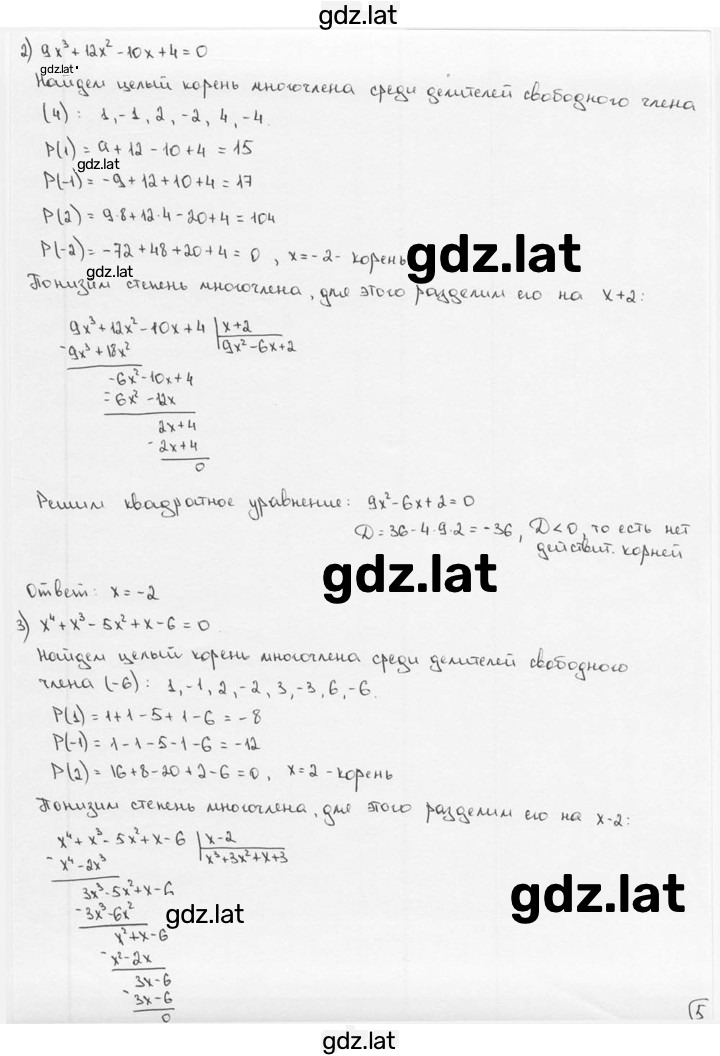 gdz.lat
2) 9x³ + 12x² - 10x + 4 = 0
gdz.lat
Найдем целый корень многочлена среди делителей свободного члена
(4) : 1, -1, 2, -2, 4, -4.
P(1) = 9 + 12 - 10 + 4 = 15
gdz.lat
P(-1) = -9 + 12 + 10 + 4 = 17
P(2) = 9·8 + 12·4 - 20 + 4 = 104
P(-2) = -72 + 48 + 20 + 4 = 0, x = -2 - корень
gdz.lat
gdz.lat
Понизим степень многочлена, для этого разделим его на x+2:
9x³ + 12x² - 10x + 4 | x+2
- 9x³ + 18x² 9x² - 6x + 2
-6x² - 10x + 4
- -6x² - 12x
2x + 4
- 2x + 4
0
Решим квадратное уравнение: 9x² - 6x + 2 = 0
D = 36 - 4·9·2 = -36, D < 0, то есть нет
действит. корней
gdz.lat
Ответ: x = -2
3) x⁴ + x³ - 5x² + x - 6 = 0
Найдем целый корень многочлена среди делителей свободного
члена (-6) : 1, -1, 2, -2, 3, -3, 6, -6.
P(1) = 1 + 1 - 5 + 1 - 6 = -8
P(-1) = 1 - 1 - 5 - 1 - 6 = -12
P(2) = 16 + 8 - 20 + 2 - 6 = 0, x = 2 - корень
Понизим степень многочлена, для этого разделим его на x-2:
x⁴ + x³ - 5x² + x - 6 | x-2
- x⁴ - 2x³ x³ + 3x² + x + 3
3x³ - 5x² + x - 6
- 3x³ - 6x²
gdz.lat
gdz.lat
x² + x - 6
- x² - 2x
3x - 6
- 3x - 6
0
5
gdz.lat